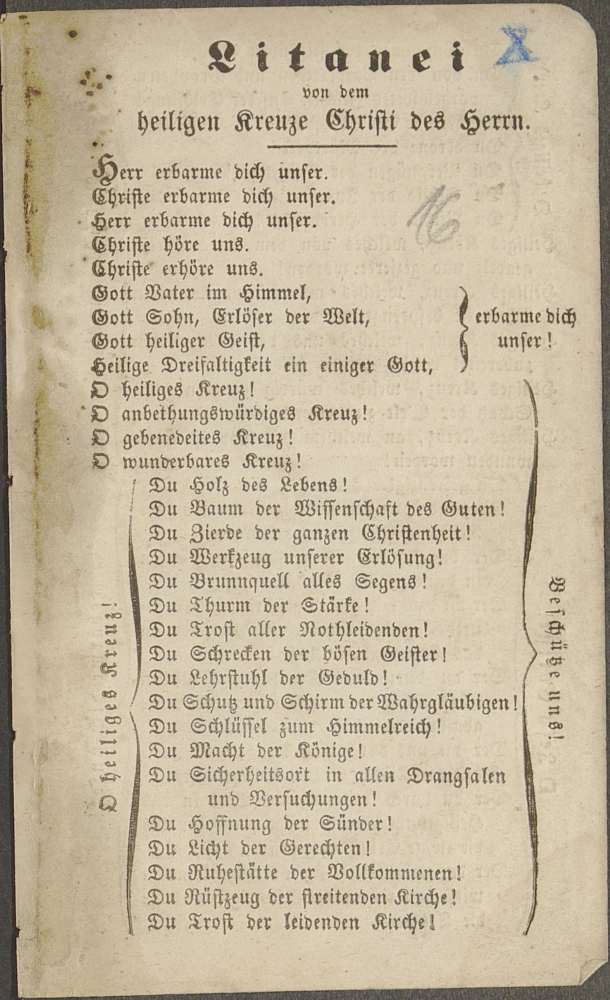 Litanei
von dem
heiligen Kreuze Christi des Herrn.
16
Herr erbarme dich unser.
Christe erbarme dich unser.
Herr erbarme dich unser.
Christe höre uns.
Christe erhöre uns.
Gott Vater im Himmel,
Gott Sohn, Erlöser der Welt,
Gott heiliger Geist,
Heilige Dreifaltigkeit ein einiger Gott,
erbarme dich
unser!
O heiliges Kreuz!
O anbethungswürdiges Kreuz!
O gebenedeites Kreuz!
O wunderbares Kreuz!
O heiliges Kreuz!
Du Holz des Lebens!
Du Baum der Wissenschaft des Guten!
Du Zierde der ganzen Christenheit!
Du Werkzeug unserer Erlösung!
Du Brunnquell alles Segens!
Du Thurm der Stärke!
Du Trost aller Nothleidenden!
Du Schrecken der bösen Geister!
Du Lehrstuhl der Geduld!
Du Schutz und Schirm der Wahrgläubigen!
Du Schlüssel zum Himmelreich!
Du Macht der Könige!
Du Sicherheitsort in allen Drangsalen
und Versuchungen!
Du Hoffnung der Sünder!
Du Licht der Gerechten!
Du Ruhestätte der Vollkommenen!
Du Rüstzeug der streitenden Kirche!
Du Trost der leidenden Kirche!
Beschütze uns!